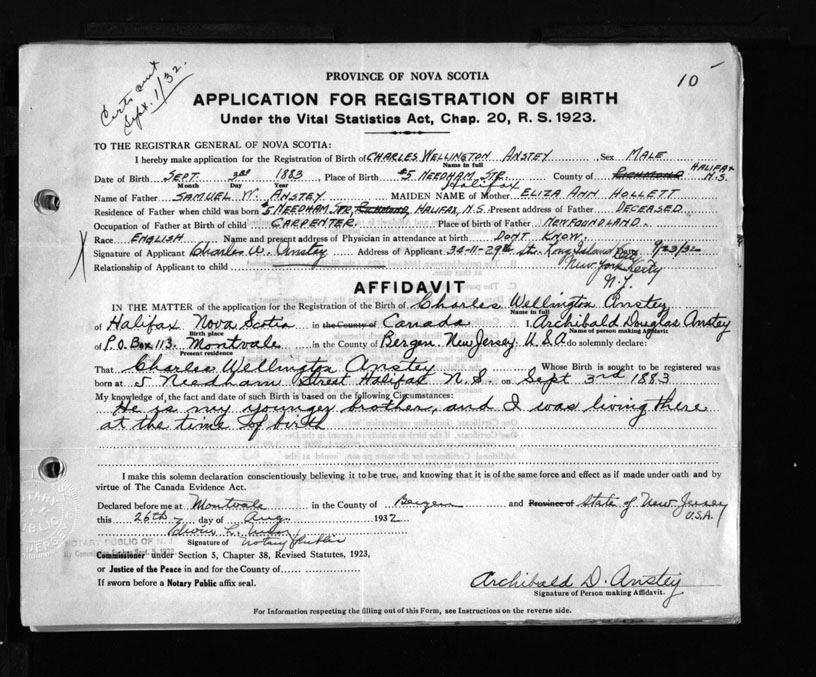 Certs sent
Sept. 1/32.
10
PROVINCE OF NOVA SCOTIA
APPLICATION FOR REGISTRATION OF BIRTH
Under the Vital Statistics Act, Chap. 20, R. S. 1923.
TO THE REGISTRAR GENERAL OF NOVA SCOTIA:
I hereby make application for the Registration of Birth of CHARLES WELLINGTON ANSTEY, Sex MALE
Name in full
Date of Birth SEPT. 3RD 1883 Place of Birth #5 NEEDHAM STR. Halifax County of RICHMOND HALIFAX N.S.
Month Day Year
Name of Father SAMUEL W. ANSTEY MAIDEN NAME of Mother ELIZA ANN HOLLETT
Residence of Father when child was born #5 NEEDHAM STR, RICHMOND, HALIFAX, N.S. Present address of Father DECEASED
Occupation of Father at Birth of child CARPENTER. Place of birth of Father NEWFOUNDLAND.
Race ENGLISH Name and present address of Physician in attendance at birth DON'T KNOW.
Signature of Applicant Charles W. Anstey Address of Applicant 34-11-29th St. Long Island City 8/23/32
New York City
N.Y.
Relationship of Applicant to child
AFFIDAVIT
IN THE MATTER of the application for the Registration of the Birth of Charles Wellington Anstey
Name in full
of Halifax Nova Scotia in the County of Canada I, Archibald Douglas Anstey
Birth place Name of person making Affidavit
of P.O. Box 113. Montvale in the County of Bergen. New Jersey. U.S.A do solemnly declare:
Present residence
That Charles Wellington Anstey Whose Birth is sought to be registered was
born at 5 Needham Street Halifax N.S. on Sept 3rd 1883
My knowledge of the fact and date of such Birth is based on the following Circumstances:
He is my younger brother, and I was living there
at the time of birth
I make this solemn declaration conscientiously believing it to be true, and knowing that it is of the same force and effect as if made under oath and by
virtue of The Canada Evidence Act.
Declared before me at Montvale in the County of Bergen and Province of State of New Jersey
U.S.A.
this 26th day of Aug. 1932
Signature of Notary Public
NOTARY PUBLIC OF N.J.
Commissioner under Section 5, Chapter 38, Revised Statutes, 1923,
or Justice of the Peace in and for the County of
If sworn before a Notary Public affix seal.
Archibald D. Anstey
Signature of Person making Affidavit.
For Information respecting the filling out of this Form, see Instructions on the reverse side.